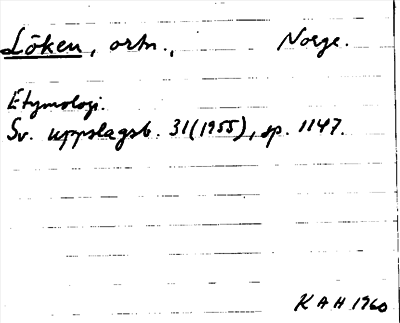 Löken, ortn., Norge.
Etymologi.
Sv. uppslagsb. 31(1955), sp. 1147.
KAH 1960